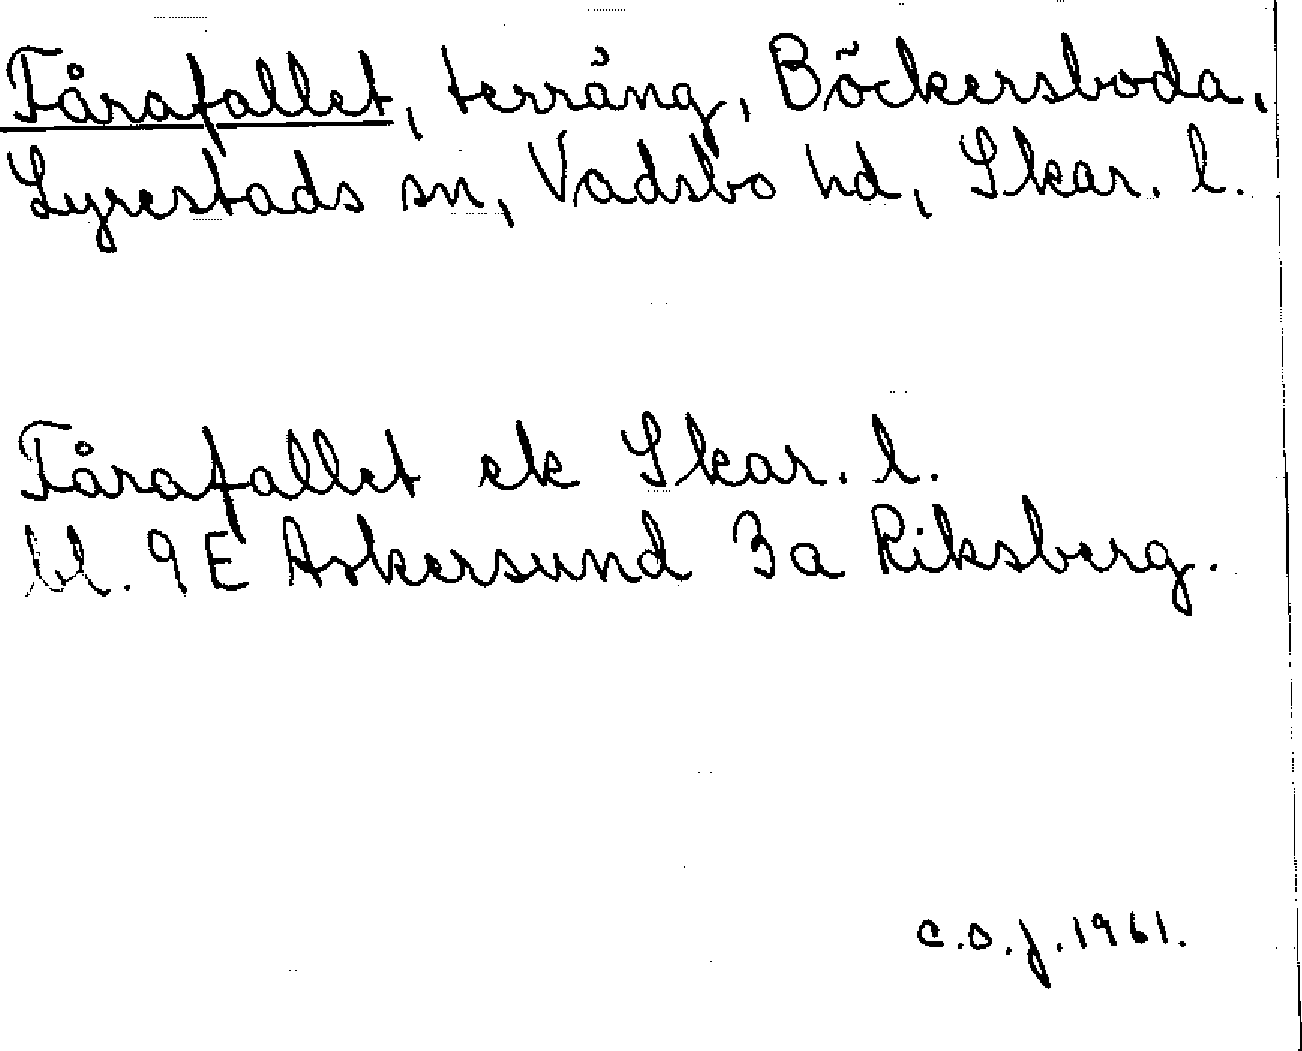 Fårafallet, terräng, Böckersboda,
Lyrestads sn, Vadsbo hd, Skar. l.
Fårafallet ek Skar. l.
bl. 9E Askersund 3a Riksberg.
C.O.J. 1961.